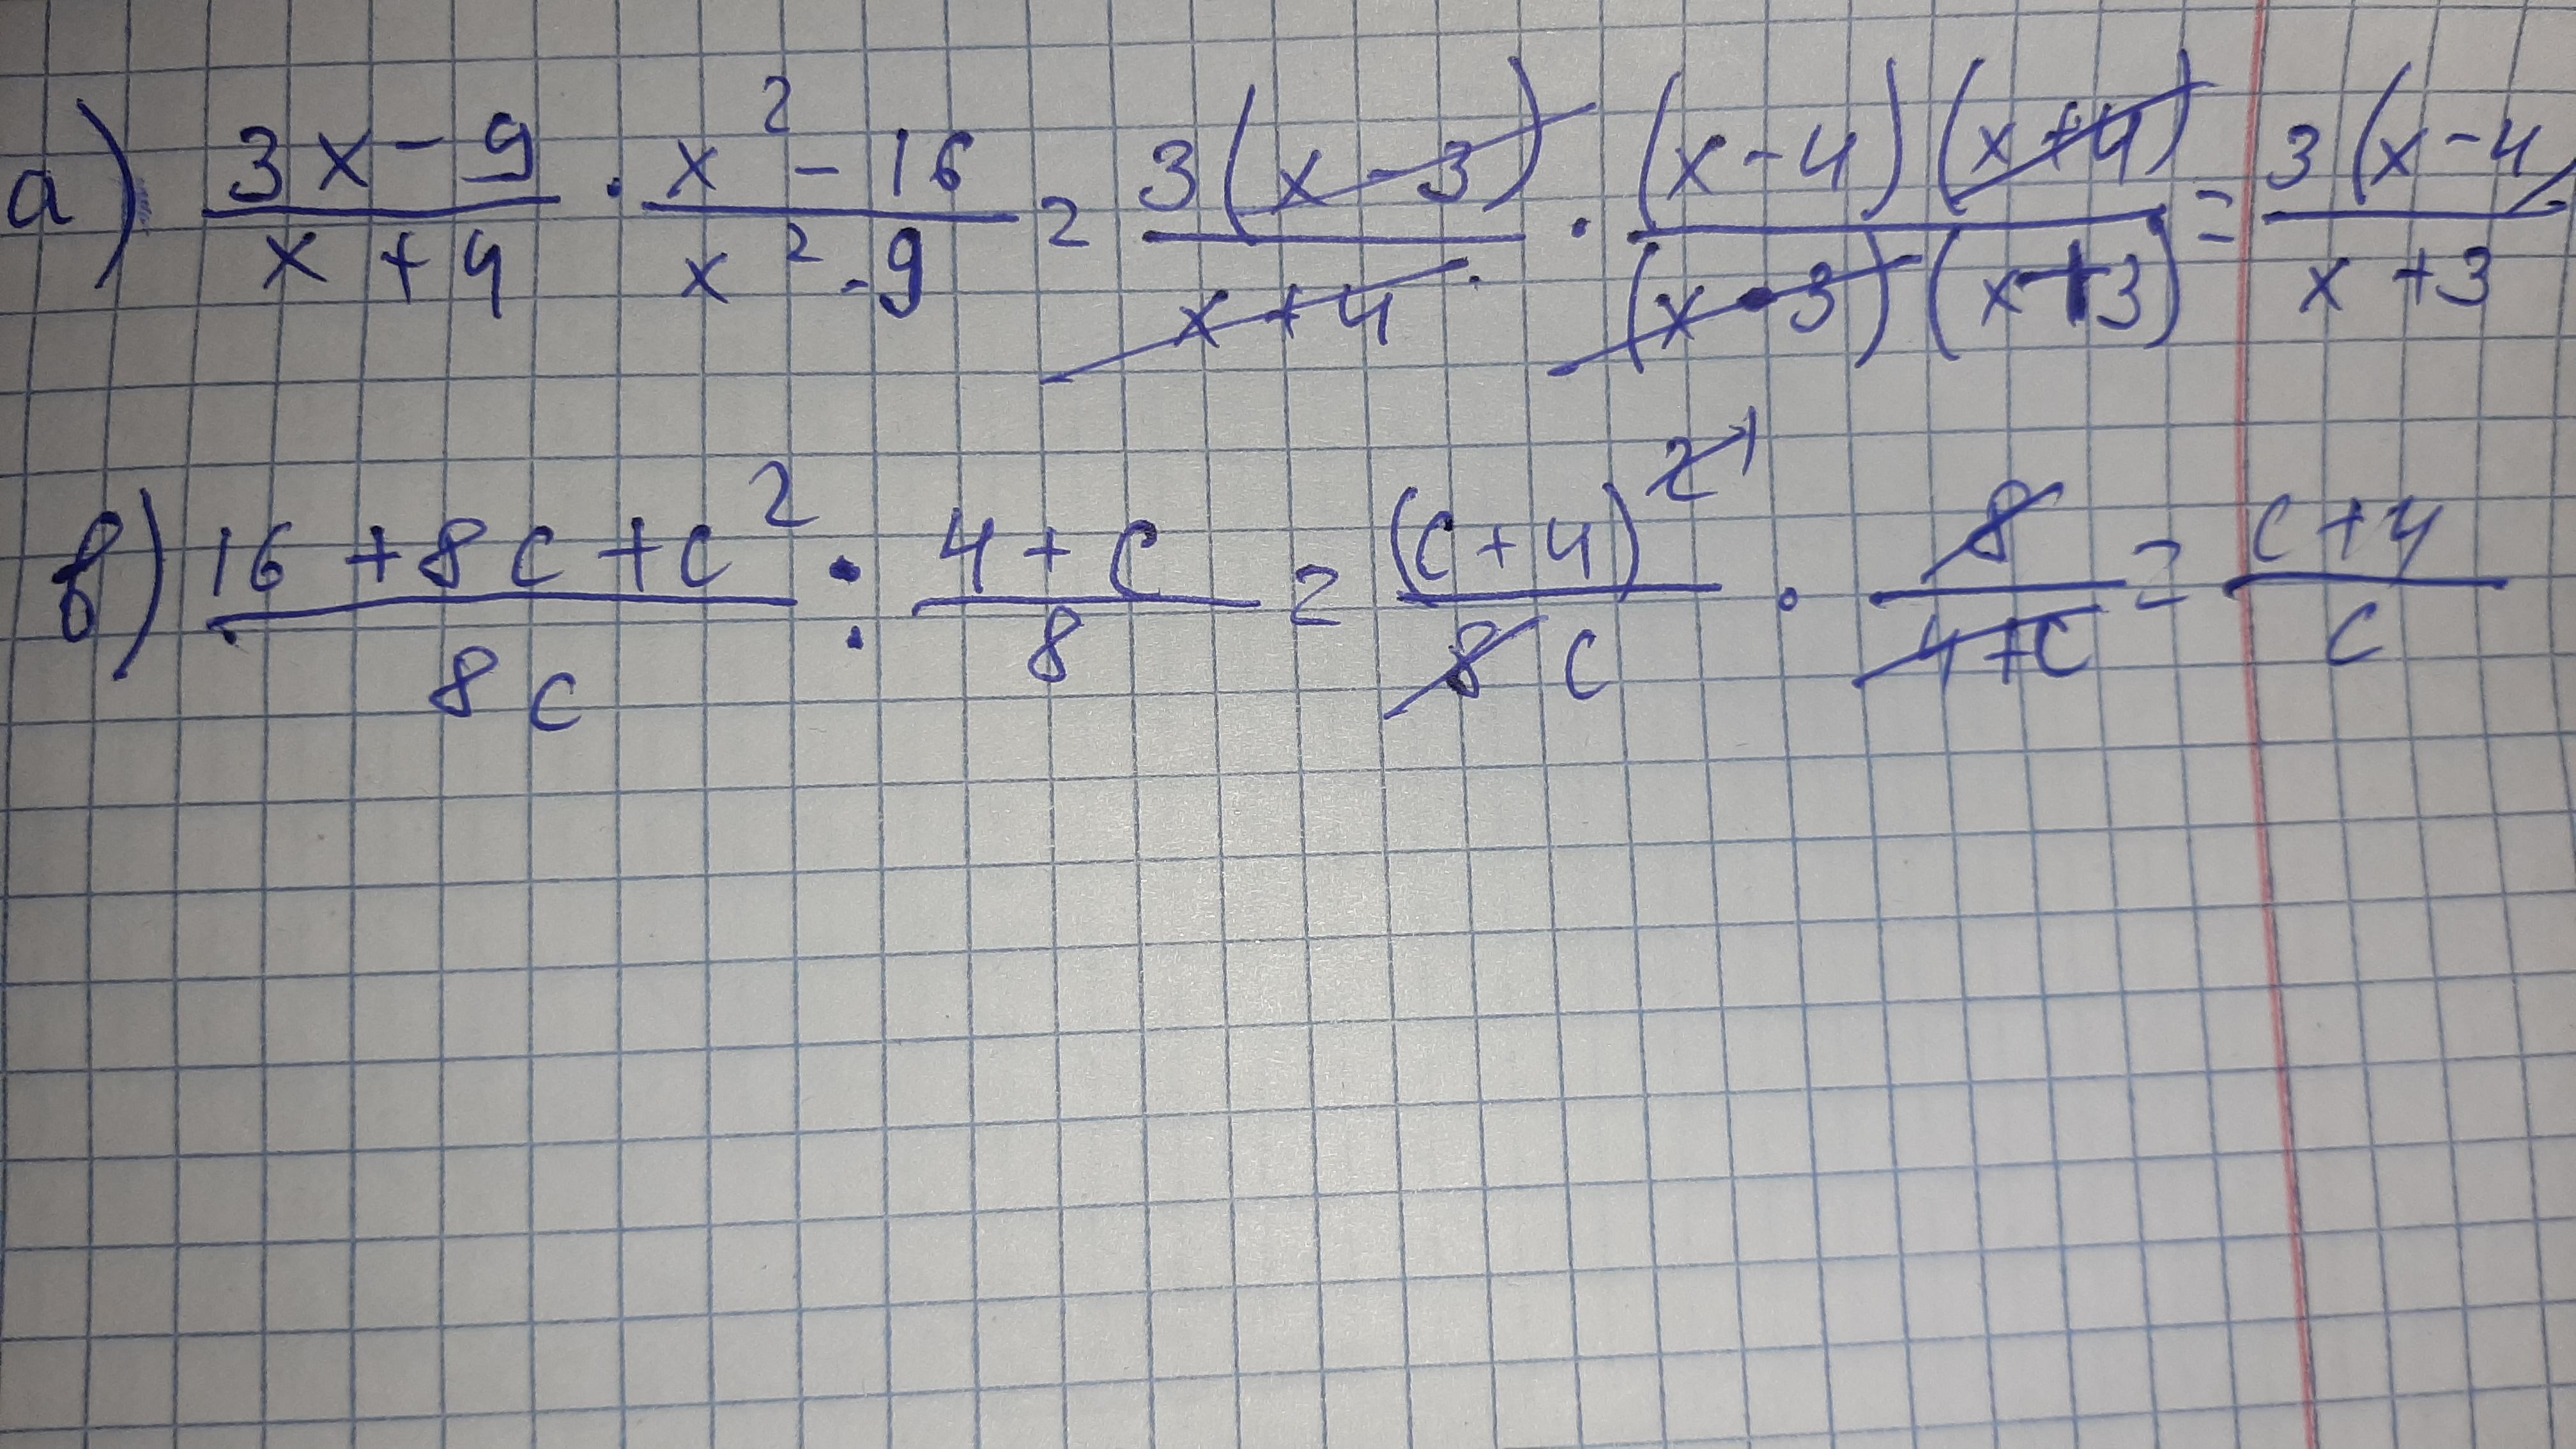 а) (3x - 9)/(x + 4) · (x² - 16)/(x² - 9) = 3(x - 3)/(x + 4) · (x - 4)(x + 4)/((x - 3)(x + 3)) = 3(x - 4)/(x + 3)
в) (16 + 8c + c²)/(8c) : (4 + c)/8 = (c + 4)² ¹/(8c) · 8/(4 + c) = (c + 4)/c